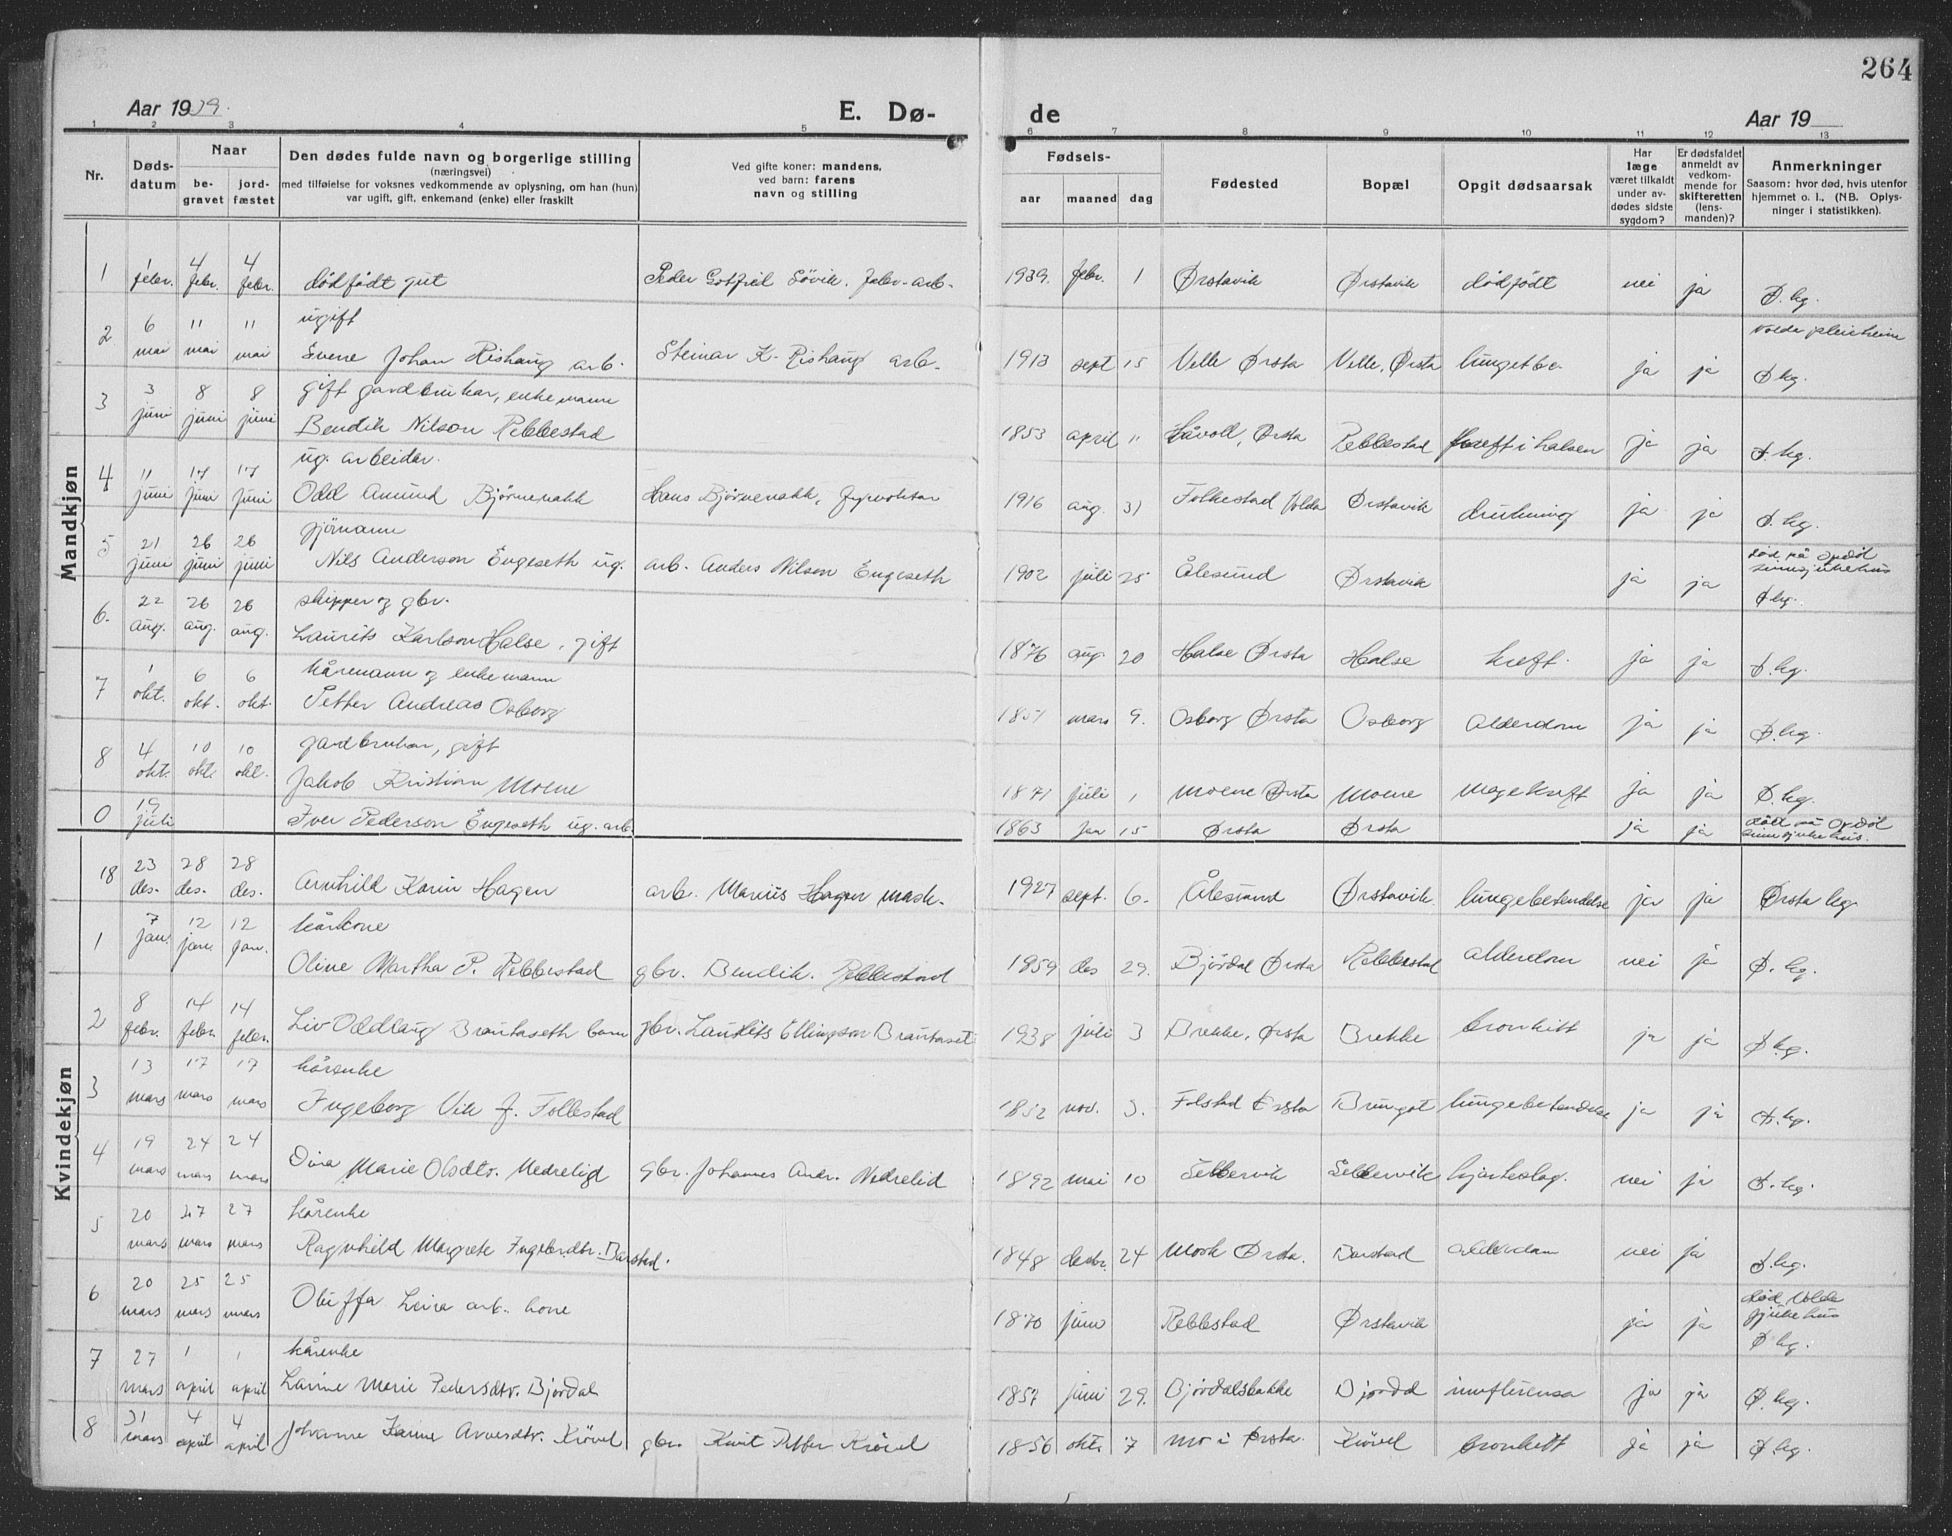 264
Aar 1939.
E. Dø-
de
Aar 19
1 2 3 4 5 6 7 8 9 10 11 12 13
Nr.
Døds-
datum
Naar
be-
gravet
jord-
fæstet
Den dødes fulde navn og borgerlige stilling
(næringsvei)
med tilføielse for voksnes vedkommende av oplysning, om han (hun)
var ugift, gift, enkemand (enke) eller fraskilt
Ved gifte koner: mandens,
ved barn: farens
navn og stilling
Fødsels-
aar maaned dag
Fødested
Bopæl
Opgit dødsaarsak
Har
læge
været tilkaldt
under av-
dødes sidste
sygdom?
Er dødsfaldet
anmeldt av
vedkom-
mende for
skifteretten
(lens-
manden)?
Anmerkninger
Saasom: hvor død, hvis utenfor
hjemmet o. l., (NB. Oplys-
ninger i statistikken).
Mandkjøn
1 1 febr. 4 febr. 4 febr. dødfødt gut Peder Gotfred Søvik. fabr.-arb. 1939. febr. 1 Ørstavik Ørstavik dødfødt nei ja Ø. kg.
ugift Volda pleieheim
2 6 mai 11 mai 11 mai Svene Johan Rishaug arb. Steinar K. Rishaug arb. 1913 sept 15 Velle Ørsta Velle, Ørsta lungetbc. ja ja Ø kg.
gift gardbrukar, enkemann
3 3 juni 8 juni 8 juni Bendik Nilson Rebbestad 1853 april 11 Håvoll, Ørsta Rebbestad kreft i halsen ja ja Ø. kg.
ug. arbeider.
4 11 juni 17 juni 17 juni Odd Amund Bjørnenakk Hans Bjørnenakk, fyrvoktar 1916 aug. 31 Folkestad Volda Ørstavik drukning ja ja Ø. kg.
sjømann død på Opdøl
5 21 juni 26 juni 26 juni Nils Anderson Engeseth ug. arb. Anders Nilson Engeseth 1902 juli 25 Ålesund Ørstavik ja ja sinnsjukehus Ø kg.
skipper og gbr.
6. 22 aug. 26 aug. 26 aug. Laurits Karlson Halse, gift 1876 aug. 20 Halse Ørsta Halse kreft. ja ja Ø. kg.
kårmann og enkemann
7 1 okt. 6 okt. 6 okt. Petter Andreas Osborg 1851 mars 9. Osborg Ørsta Osborg alderdom ja ja Ø. kg.
gardbrukar, gift
8 4 okt. 10 okt. 10 okt. Jakob Kristian Moene 1871 juli 1 Moene Ørsta Moene magekreft ja ja Ø. kg.
0 19 juli Iver Pederson Engeseth ug. arb. 1863 jan 15 Ørsta Ørsta ja ja død på Opdøl
sinnsjukehus.
Kvindekjøn
18 23 des. 28 des. 28 des. Arnhild Karin Hagen arb. Marius Hagen mask. 1927 sept. 6. Ålesund Ørstavik lungebetendelse ja ja Ørsta kg.
kårkone
1 7 jan. 12 jan. 12 jan. Oline Martha P. Rebbestad gbr. Bendik. Rebbestad 1859 des 29. Bjørdal Ørsta Rebbestad alderdom nei ja Ø. kg.
2 8 febr. 14 febr. 14 febr. Liv Oddlaug Brautaseth barn gbr. Laurits Ellingson Brautaset 1938 juli 3 Brekke, Ørsta Brekke bronkitt ja ja Ø kg.
kårenke
3 13 mars 17 mars 17 mars Ingeborg Vik f. Follestad 1852 nov. 3. Folstad Ørsta Brungot lungebetendelse ja ja Ø. kg.
4 19 mars 24 mars 24 mars Dina Marie Olsdtr. Nedrelid gbr. Johannes Andr. Nedrelid 1892 mai 10 Sæbervik Sæbervik hjarteslag. nei ja Ø. kg.
kårenke
5 20 mars 27 mars 27 mars Ragnhild Margrete Ingebr.dtr. Barstad. 1848 desbr. 24 Mork Ørsta. Barstad alderdom nei ja Ø. kg.
6 20 mars 25 mars 25 mars Oluffa Leira arb. kone 1870 juni Rebbestad Ørstavik ja ja død Volda
sjukehus
Ø kg.
kårenke
7 27 mars 1 april 1 april Larine Marie Pedersdtr. Bjørdal 1857 juni 29. Bjørdalsbakke Bjørdal innfluensa ja ja Ø. kg.
8 31 mars 4 april 4 april Johanne Karine Arnesdtr. Kiøvel gbr. Knut Petter Kiøvel 1856 okt. 7 Mo i Ørsta. Kiøvel bronkitt ja ja Ø. kg.